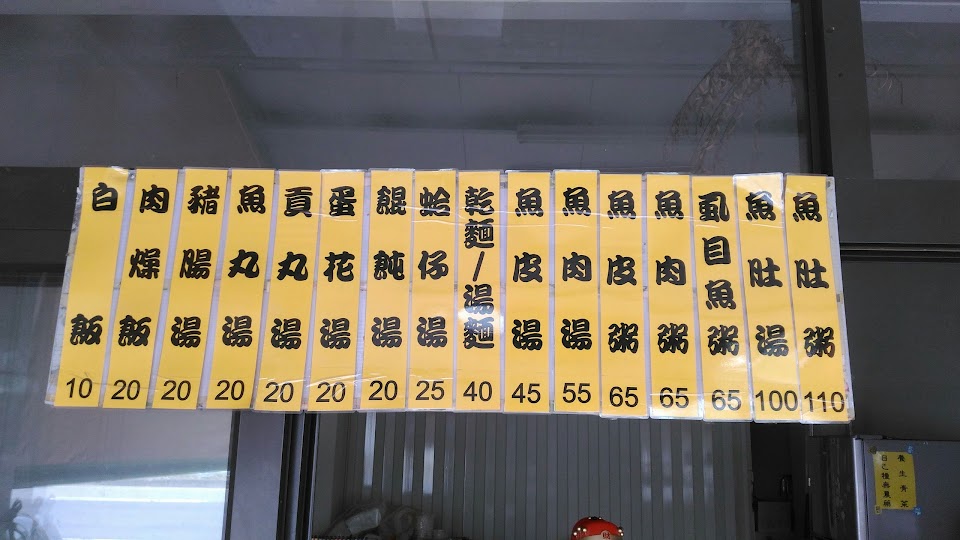 魚肚粥 110
魚肚湯 100
虱目魚粥 65
魚肉粥 65
魚皮粥 65
魚肉湯 55
魚皮湯 45
乾麵/湯麵 40
蛤仔湯 25
餛飩湯 20
蛋花湯 20
貢丸湯 20
魚丸湯 20
豬腸湯 20
肉燥飯 20
白飯 10
養生青菜
自己種無農藥